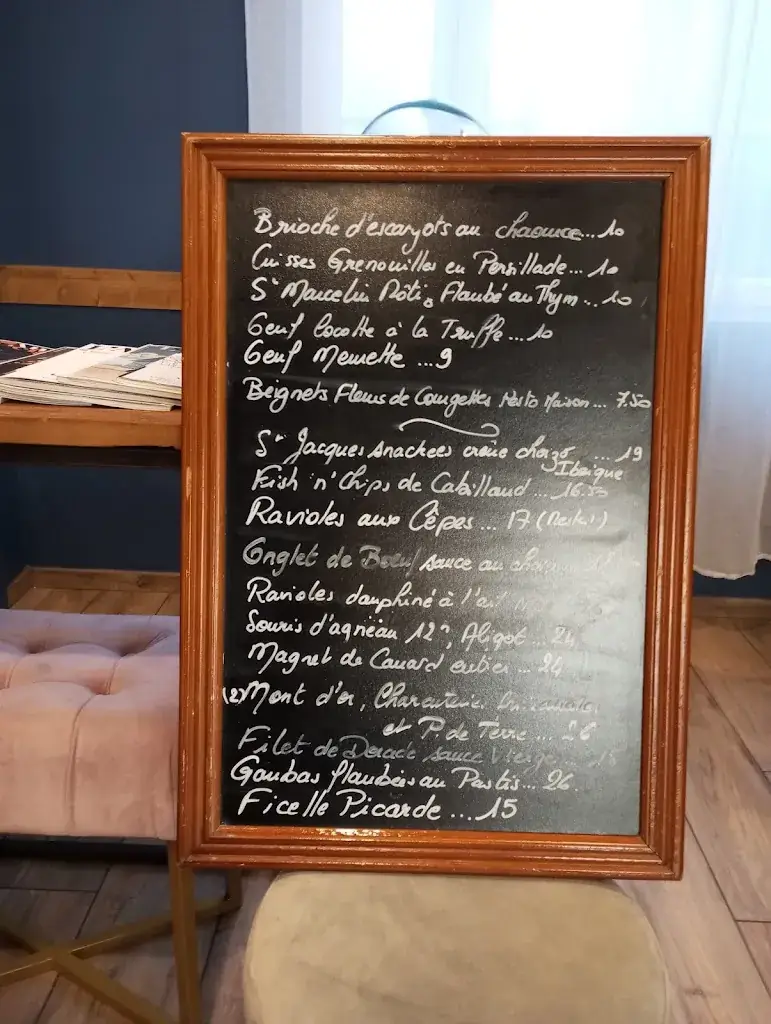 Brioche d'escargots au chaource...10
Cuisses Grenouilles en Persillade...10
St Marcelin Rôti, Flambé au Thym...10
Oeuf Cocotte à la Truffe...10
Oeuf Meurette...9
Beignets Fleurs de Courgettes Resto Maison...7.50
St Jacques snackées crème chorizo...19
Ibérique
Fish n' Chips de Cabillaud...16.50
Ravioles aux Cèpes...17
Onglet de Boeuf sauce au
Ravioles dauphiné à l'ail
Souris d'agneau 12h, Aligot...24
Magret de Canard entier...24
(2) Mont d'or, Charcuterie
et P. de Terre...26
Filet de Dorade sauce Vierge
Gambas flambées au Pastis...26
Ficelle Picarde...15